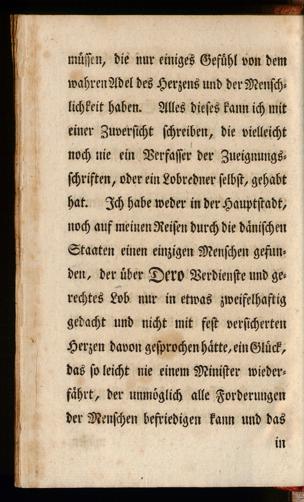 müssen, die nur einiges Gefühl von dem
wahren Adel des Herzens und der Mensch-
lichkeit haben. Alles dieses kann ich mit
einer Zuversicht schreiben, die vielleicht
noch nie ein Verfasser der Zueignungs-
schriften, oder ein Lobredner selbst, gehabt
hat. Ich habe weder in der Hauptstadt,
noch auf meinen Reisen durch die dänischen
Staaten einen einzigen Menschen gefun-
den, der über Dero Verdienste und ge-
rechtes Lob nur in etwas zweifelhaftig
gedacht und nicht mit fest versicherten
Herzen davon gesprochen hätte, ein Glück,
das so leicht nie einem Minister wieder-
fährt, der unmöglich alle Forderungen
der Menschen befriedigen kann und das
in